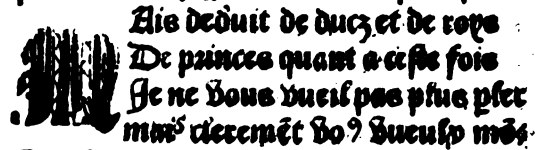 MAis deduit de ducz et de roys
De princes quant a ceste fois
Je ne vous vueil pas plus pler
mais cleremēt voꝰ vueul